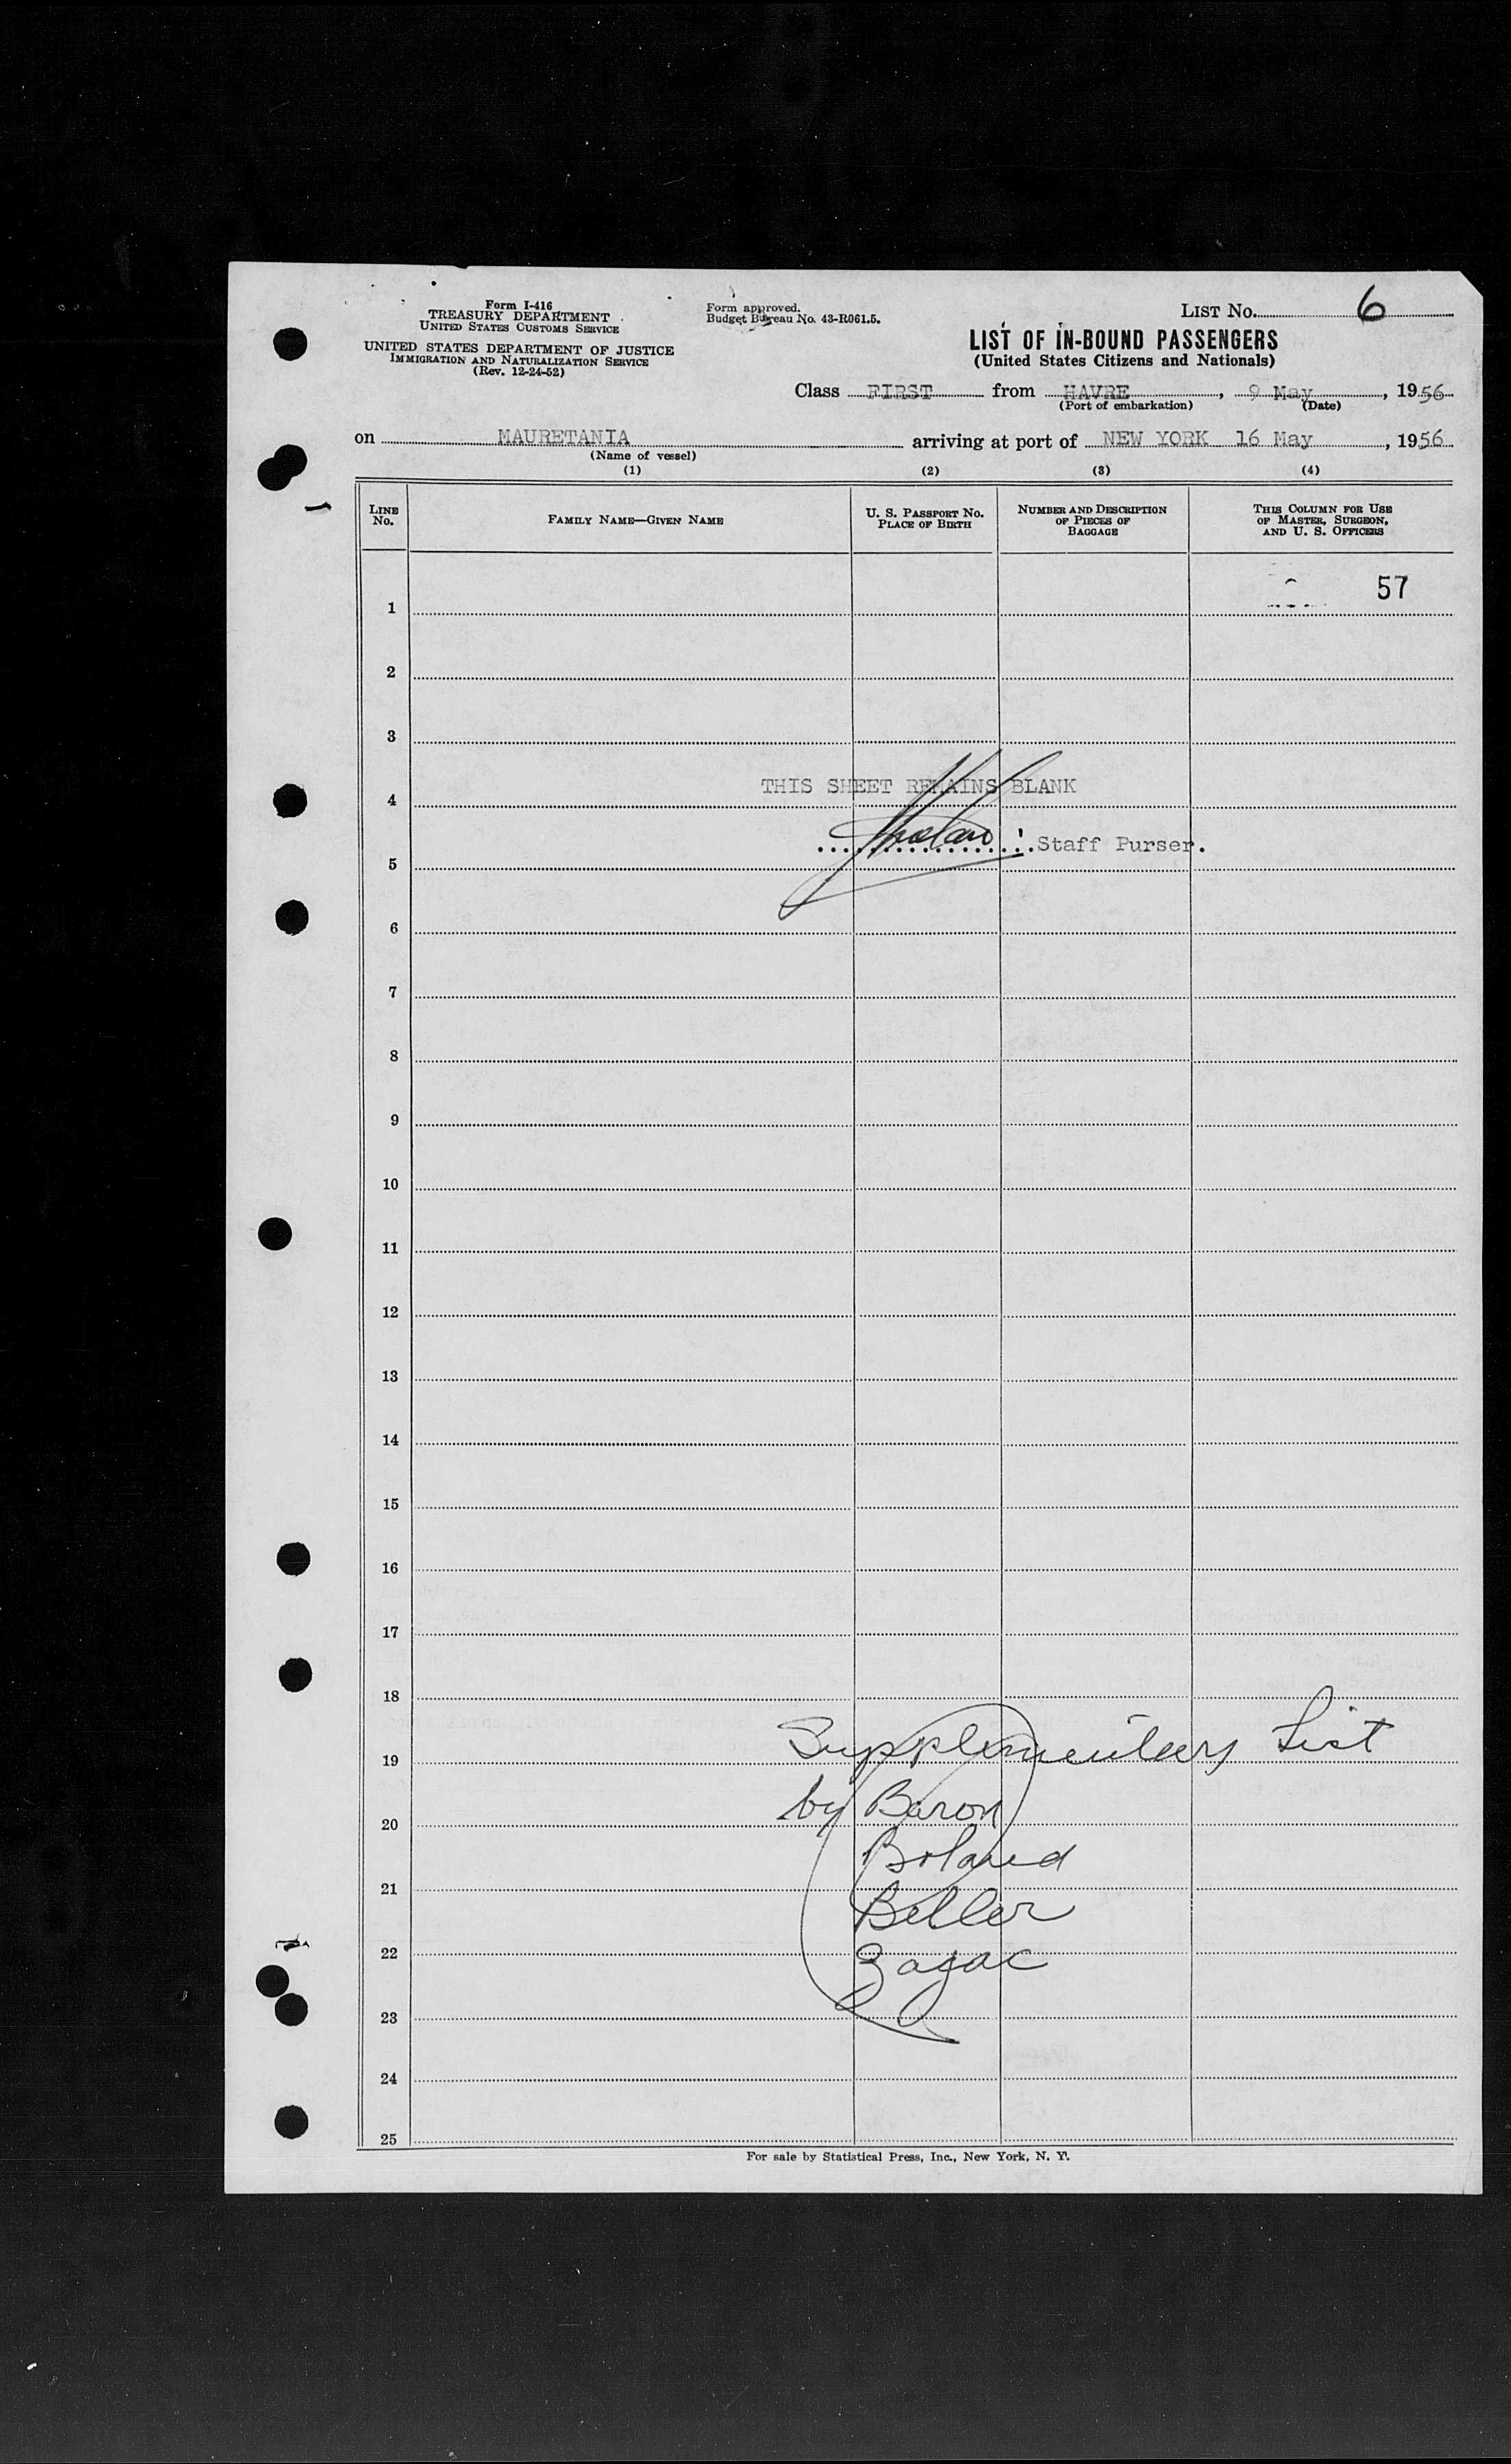 Form I-416
TREASURY DEPARTMENT
UNITED STATES CUSTOMS SERVICE
UNITED STATES DEPARTMENT OF JUSTICE
IMMIGRATION AND NATURALIZATION SERVICE
(Rev. 12-24-52)
Form approved.
Budget Bureau No. 43-R061.5.
LIST No. 6
LIST OF IN-BOUND PASSENGERS
(United States Citizens and Nationals)
Class FIRST from HAVRE, 9 May, 1956
(Port of embarkation) (Date)
on MAURETANIA arriving at port of NEW YORK 16 May, 1956
(Name of vessel)
(1) (2) (3) (4)
LINE No. FAMILY NAME—GIVEN NAME U. S. PASSPORT No. PLACE OF BIRTH NUMBER AND DESCRIPTION OF PIECES OF BAGGAGE THIS COLUMN FOR USE OF MASTER, SURGEON, AND U. S. OFFICERS
57
1
2
3
THIS SHEET REMAINS BLANK
4
Staff Purser.
5
6
7
8
9
10
11
12
13
14
15
16
17
18
Supplementary List
19
by Baron
20
Boland
21
Beller
22
Zajac
23
24
25
For sale by Statistical Press, Inc., New York, N. Y.